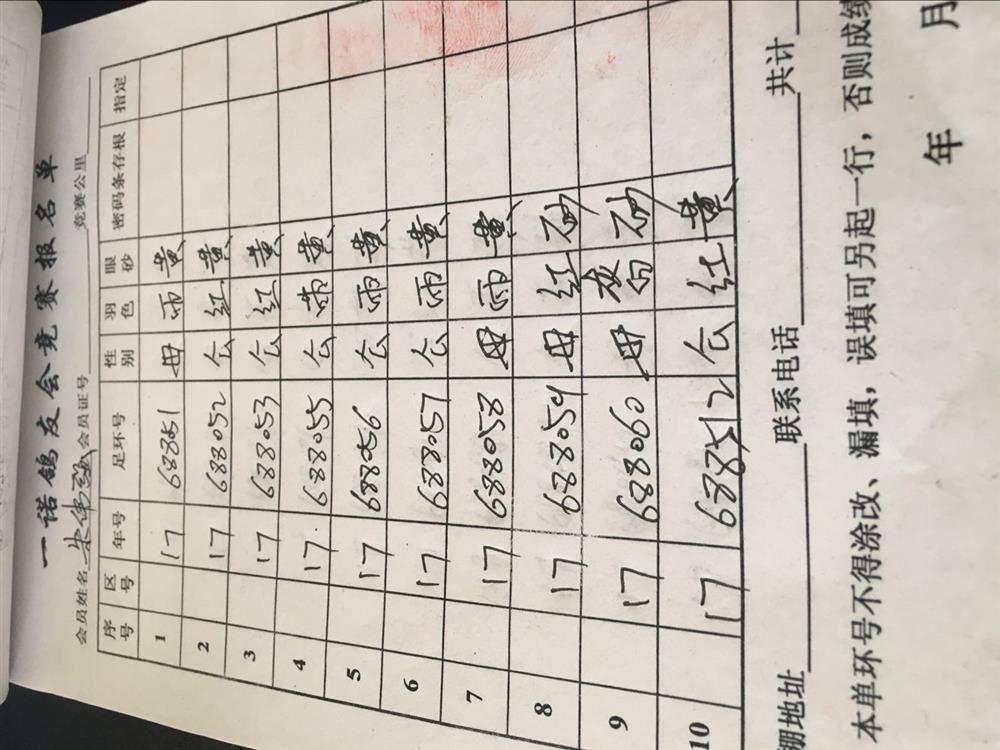 一诺鸽友会竞赛报名单
会员姓名 会员证号 竞赛公里
序号 区号 年号 足环号 性别 羽色 眼砂 密码条存根 指定
1 17 688051 母 雨 黄
2 17 688052 公 红 黄
3 17 688053 公 红 黄
4 17 688055 公 雨 黄
5 17 688056 公 雨 黄
6 17 688057 公 雨 黄
7 17 688058 母 雨 黄
8 17 688059 母 红 砂
9 17 688060 母 砂
10 17 公 红 黄
棚地址 联系电话 共计
本单环号不得涂改、漏填，误填可另起一行，否则成绩
年 月